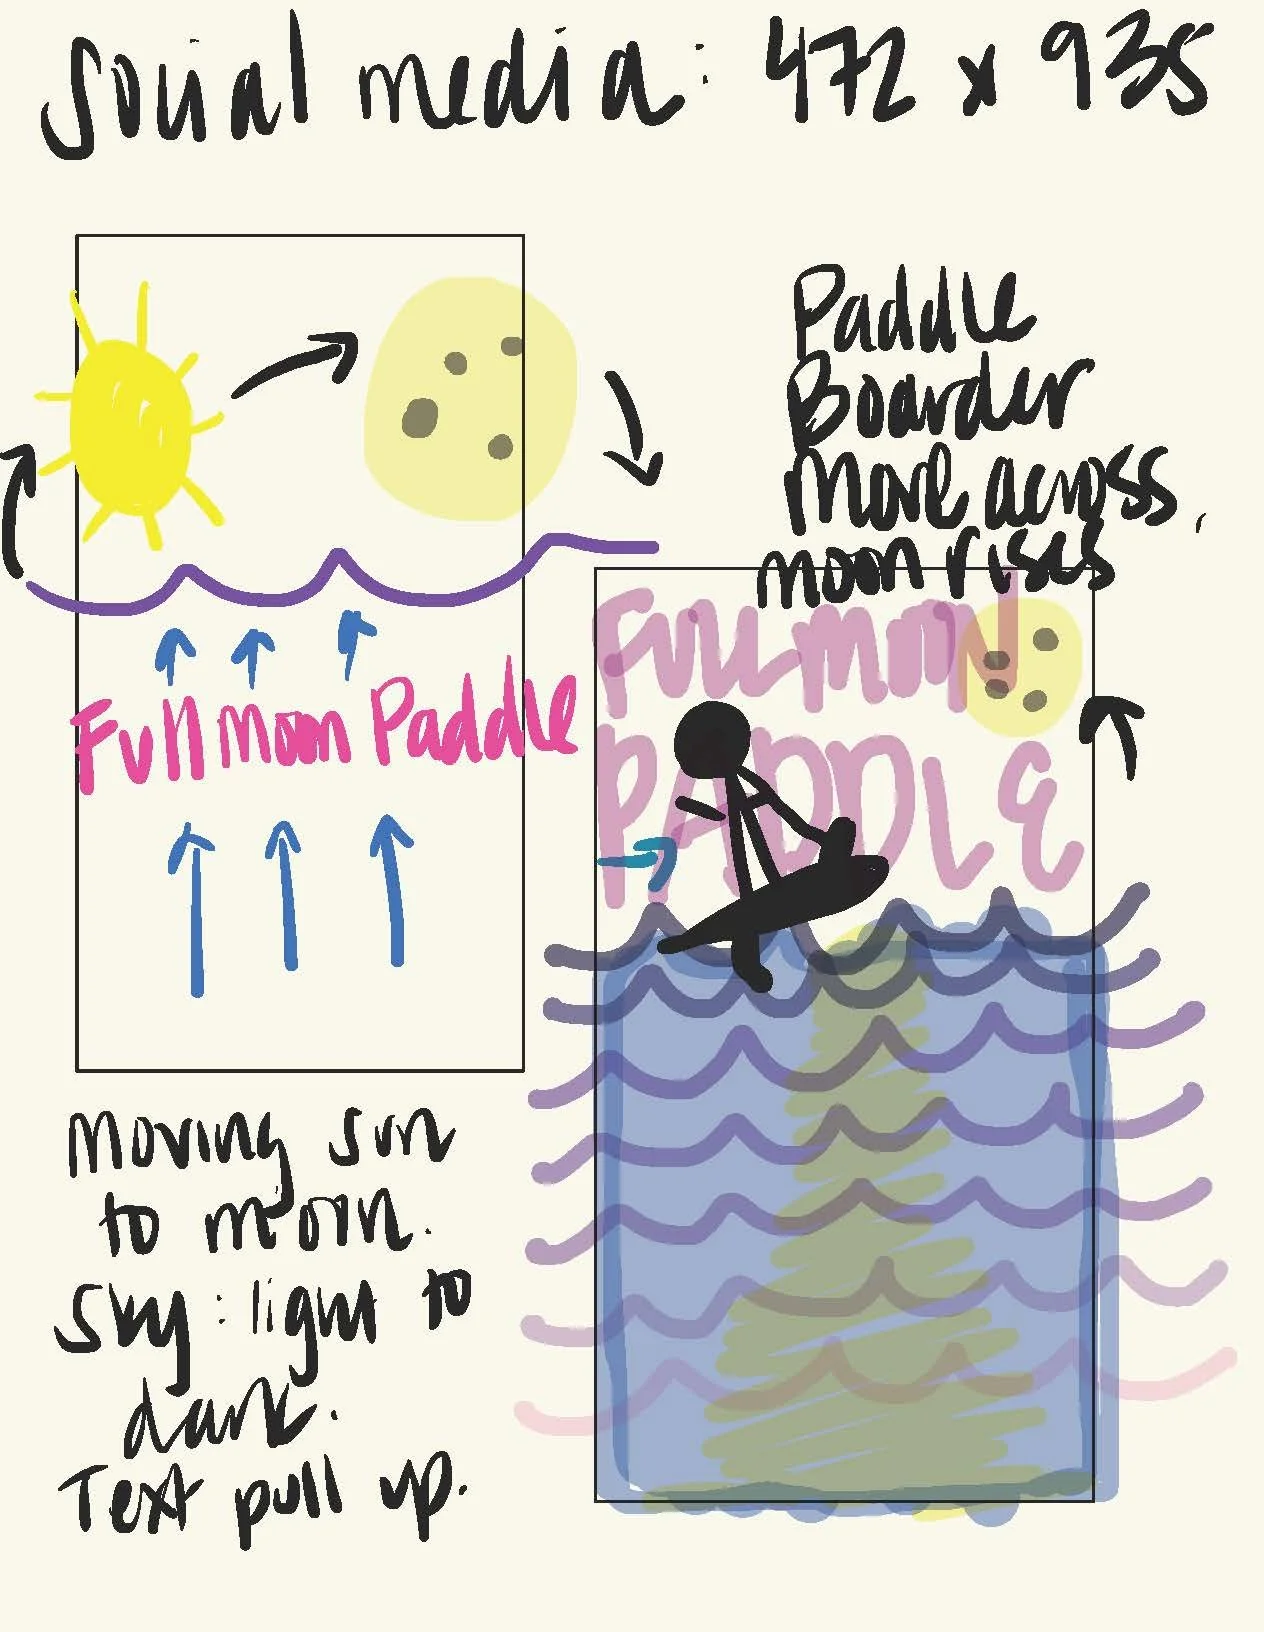 Social media: 472 x 935
Full moon Paddle
Moving sun
to moon.
Sky: light to
dark.
Text pull up.
Paddle
Boarder
Move across,
moon rises
FULL MOON
PADDLE